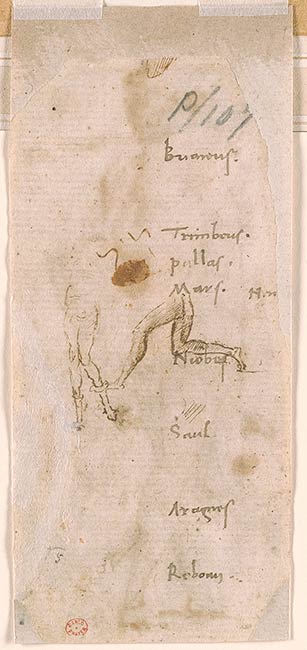 P/107
Briareus.
Trimbous.
pallas.
Mars.
Niobes
Saul
Aragnes
Roboam.
5